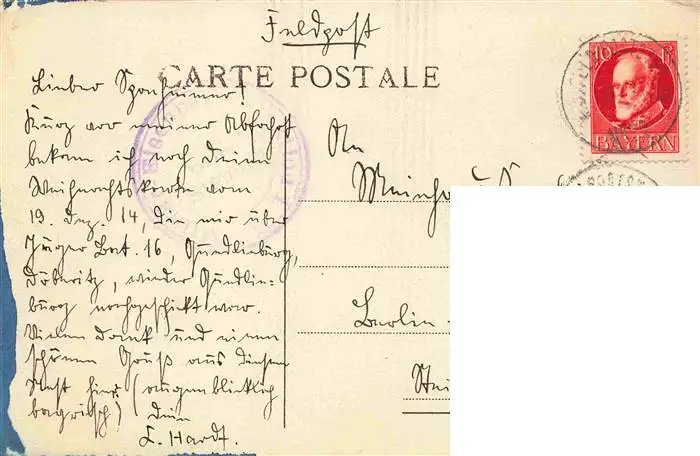 Feldpost
CARTE POSTALE
10 Pf
BAYERN
Lieber Sponheimer!
Kurz vor meiner Abfahrt
bekam ich noch Deine
Weihnachtskarte vom
19. Dez. 14, die mir über
Jäger Bat. 16, Quedlinburg,
Döberitz, wieder Quedlin-
burg nachgeschickt war.
Vielen Dank und einen
schönen Gruß aus diesem
Nest hier (augenblicklich
bayrisch) Dein
L. Hardt.
An
Berlin